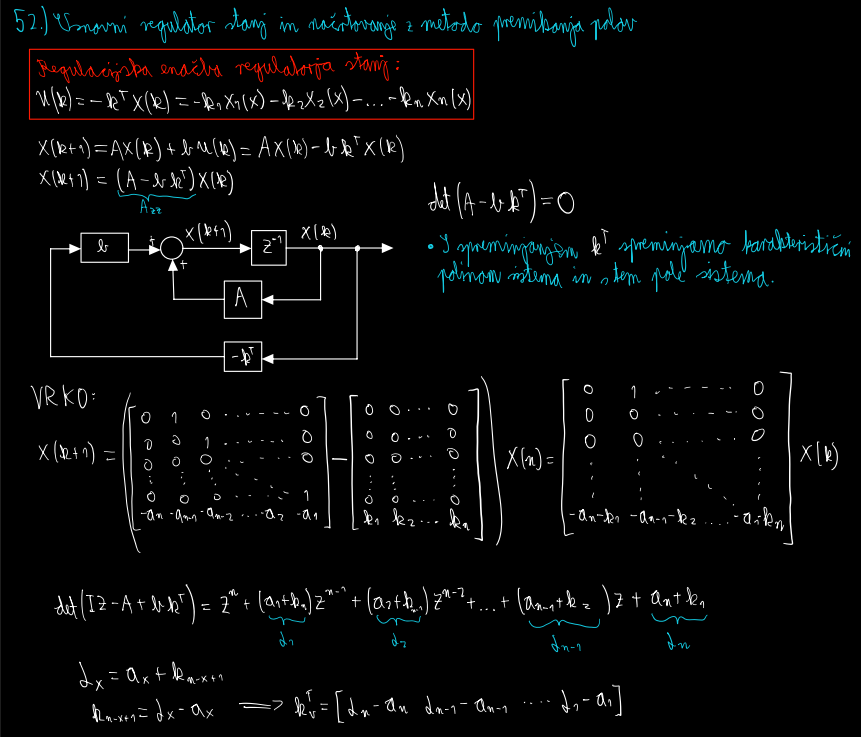 52.) Osnovni regulator stanj in načrtovanje z metodo premikanja polov
Regulacijska enačba regulatorja stanj:
u(k) = -kᵀ x(k) = -k₁x₁(x) - k₂x₂(x) - ... - kₙxₙ(x)
x(k+1) = Ax(k) + b u(k) = Ax(k) - b kᵀ x(k)
x(k+1) = (A - b kᵀ) x(k)
A_zz
det(A - b kᵀ) = 0
• S spreminjanjem kᵀ spreminjamo karakteristični
polinom sistema in s tem pole sistema.
b + x(k+1) z⁻¹ x(k)
+
A
-kᵀ
VRKO:
x(k+1) = ( [ 0 1 0 ...... 0 ; 0 0 1 ...... 0 ; 0 0 0 ...... 0 ; ⋮ ⋮ ⋮ ⋱ ; 0 0 0 ...... 1 ; -aₙ -aₙ₋₁ -aₙ₋₂ .... -a₂ -a₁ ] - [ 0 0 ... 0 ; 0 0 ... 0 ; 0 0 ... 0 ; ⋮ ⋮ ⋮ ; 0 0 ... 0 ; k₁ k₂ ... kₙ ] ) x(n) = [ 0 1 ...... 0 ; 0 0 ...... 0 ; 0 0 ...... 0 ; ⋮ ⋮ ⋱ ⋮ ; -aₙ-k₁ -aₙ₋₁-k₂ .... -a₁-kₙ ] x(k)
det(Iz - A + b kᵀ) = zⁿ + (a₁+kₙ) zⁿ⁻¹ + (a₂+kₙ₋₁) zⁿ⁻² + ... + (aₙ₋₁+k₂) z + aₙ+k₁
α₁ α₂ αₙ₋₁ αₙ
αₓ = aₓ + kₙ₋ₓ₊₁
kₙ₋ₓ₊₁ = αₓ - aₓ ⟹ kᵥᵀ = [αₙ-aₙ αₙ₋₁-aₙ₋₁ .... α₁-a₁]